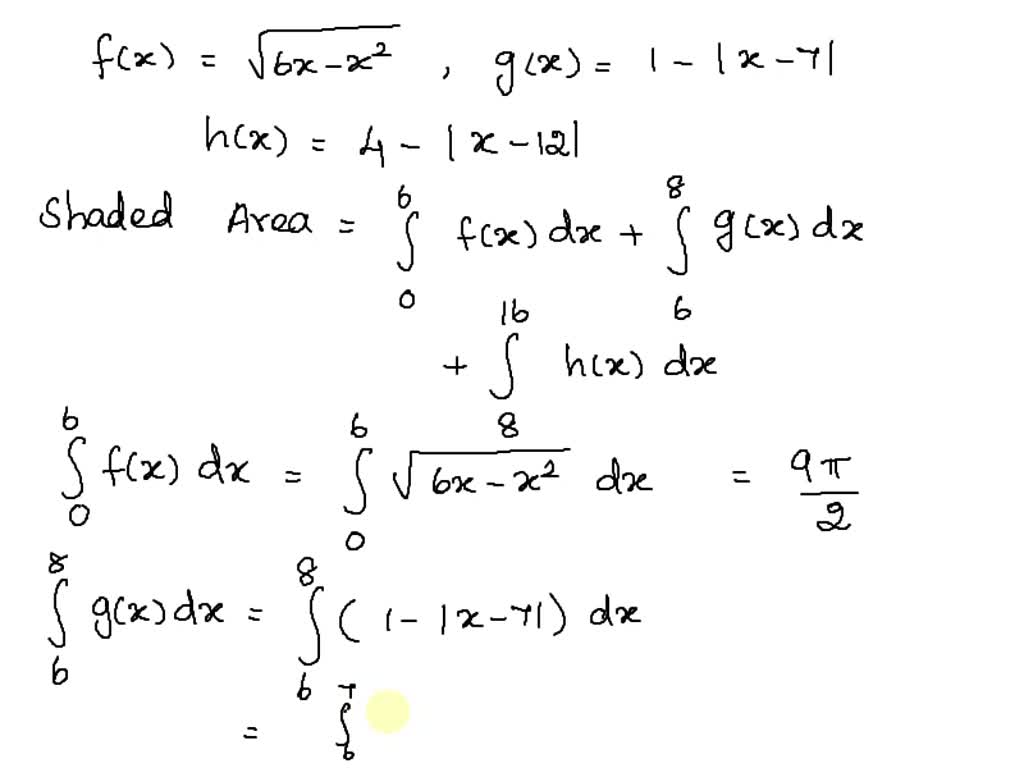 f(x) = √(6x-x²) , g(x) = 1 - |x-7|
h(x) = 4 - |x-12|
Shaded Area = ∫₀⁶ f(x) dx + ∫₆⁸ g(x) dx
+ ∫₈¹⁶ h(x) dx
∫₀⁶ f(x) dx = ∫₀⁶ √(6x-x²) dx = 9π/2
∫₆⁸ g(x) dx = ∫₆⁸ (1-|x-7|) dx
= ∫₆⁷